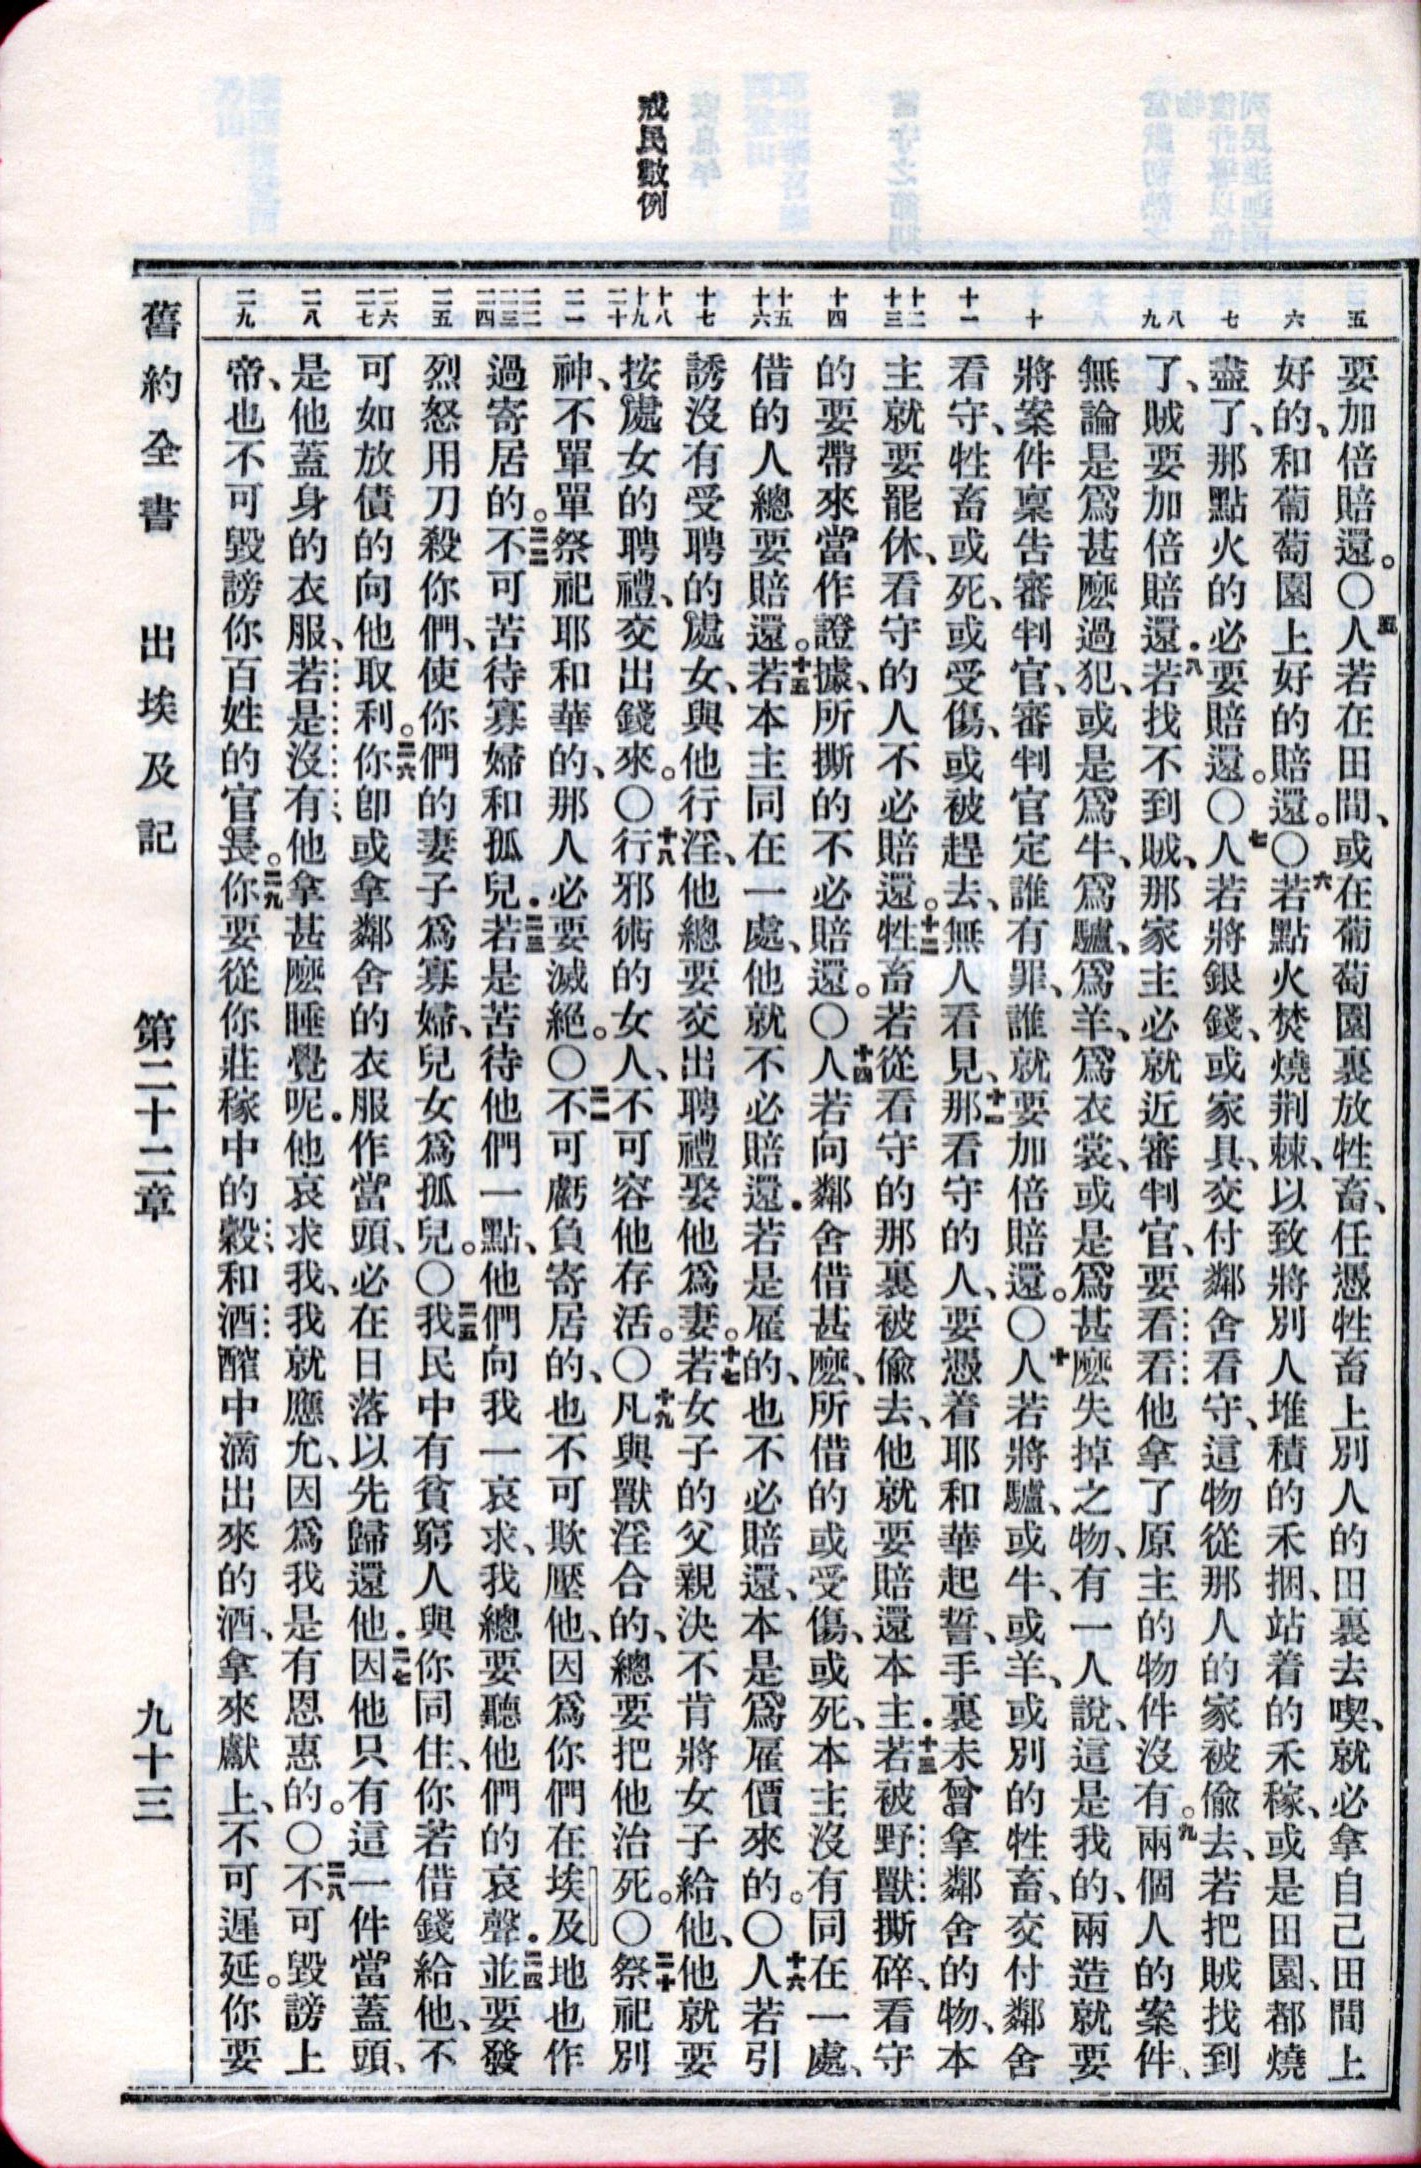 戒民數例
五
六
七
八 九
十
十一
十二 十三
十四
十五 十六
十七
十八 十九 二十
二一
二二 二三 二四
二五
二六 二七
二八
二九
要加倍賠還。〇五人若在田間、或在葡萄園裏放牲畜、任憑牲畜上別人的田裏去喫、就必拿自己田間上
好的、和葡萄園上好的賠還。〇六若點火焚燒荆棘、以致將別人堆積的禾捆、站着的禾稼、或是田園、都燒
盡了、那點火的必要賠還。〇七人若將銀錢、或家具、交付鄰舍看守、這物從那人的家被偷去、若把賊找到
了、賊要加倍賠還.八若找不到賊、那家主必就近審判官、要看看他拿了原主的物件沒有。九兩個人的案件、
無論是爲甚麽過犯、或是爲牛、爲驢、爲羊、爲衣裳、或是爲甚麽失掉之物、有一人說、這是我的、兩造就要
將案件稟告審判官、審判官定誰有罪、誰就要加倍賠還。〇十人若將驢、或牛、或羊、或別的牲畜、交付鄰舍
看守、牲畜或死、或受傷、或被趕去、無人看見、十一那看守的人、要憑着耶和華起誓、手裏未曾拿鄰舍的物、本
主就要罷休、看守的人不必賠還。十二牲畜若從看守的那裏被偷去、他就要賠還本主.十三若被野獸撕碎、看守
的要帶來當作證據、所撕的不必賠還。〇十四人若向鄰舍借甚麽、所借的或受傷、或死、本主沒有同在一處、
借的人總要賠還。十五若本主同在一處、他就不必賠還.若是雇的、也不必賠還、本是爲雇價來的。〇十六人若引
誘沒有受聘的處女、與他行淫、他總要交出聘禮娶他爲妻。十七若女子的父親決不肯將女子給他、他就要
按處女的聘禮、交出錢來。〇十八行邪術的女人、不可容他存活。〇十九凡與獸淫合的、總要把他治死。〇二十祭祀別
神、不單單祭祀耶和華的、那人必要滅絕。〇二一不可虧負寄居的、也不可欺壓他、因爲你們在埃及地也作
過寄居的。二二不可苦待寡婦和孤兒.二三若是苦待他們一點、他們向我一哀求、我總要聽他們的哀聲.二四並要發
烈怒用刀殺你們、使你們的妻子爲寡婦、兒女爲孤兒。〇二五我民中有貧窮人與你同住、你若借錢給他、不
可如放債的向他取利。二六你卽或拿鄰舍的衣服作當頭、必在日落以先歸還他.二七因他只有這一件當蓋頭、
是他蓋身的衣服、若是沒有他拿甚麽睡覺呢.他哀求我、我就應允、因爲我是有恩惠的。〇二八不可毀謗上
帝、也不可毀謗你百姓的官長。二九你要從你莊稼中的穀、和酒醡中滴出來的酒、拿來獻上、不可遲延。你要
舊約全書 出埃及記 第二十二章 九十三